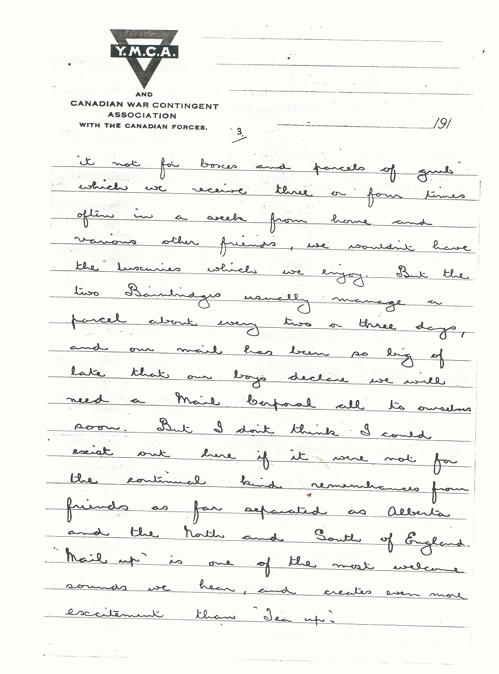 Y.M.C.A.
AND
CANADIAN WAR CONTINGENT
ASSOCIATION
WITH THE CANADIAN FORCES.
3.
191
it not for boxes and parcels of "grub"
which we receive three or four times
often in a week from home and
various other friends, we wouldn't have
the luxuries which we enjoy. But the
two Bainbridges usually manage a
parcel about every two or three days,
and our mail has been so big of
late that our boys declare we will
need a Mail Corporal all to ourselves
soon. But I don't think I could
exist out here if it were not for
the continual kind remembrances from
friends as far separated as Alberta
and the North and South of England.
"Mail up" is one of the most welcome
sounds we hear, and creates even more
excitement than "Tea up".